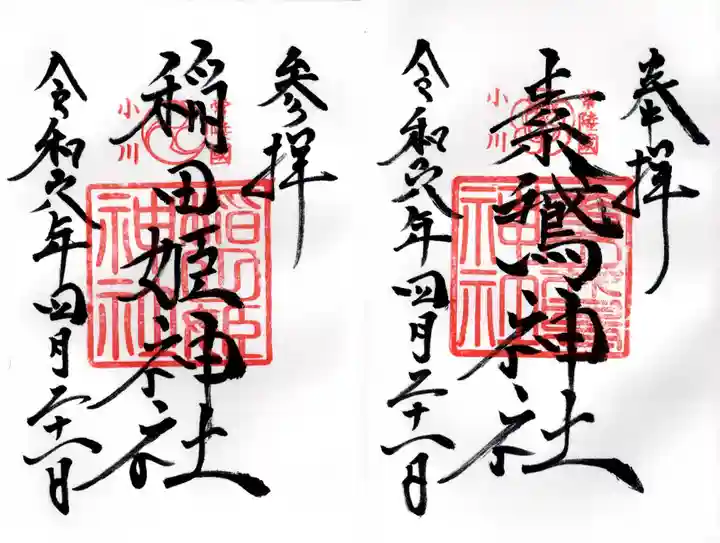 奉拝
常陸國
小川
素鵞神社
令和六年四月二十一日
参拝
常陸國
小川
稲田姫神社
稲田姫
神社
令和六年四月二十一日